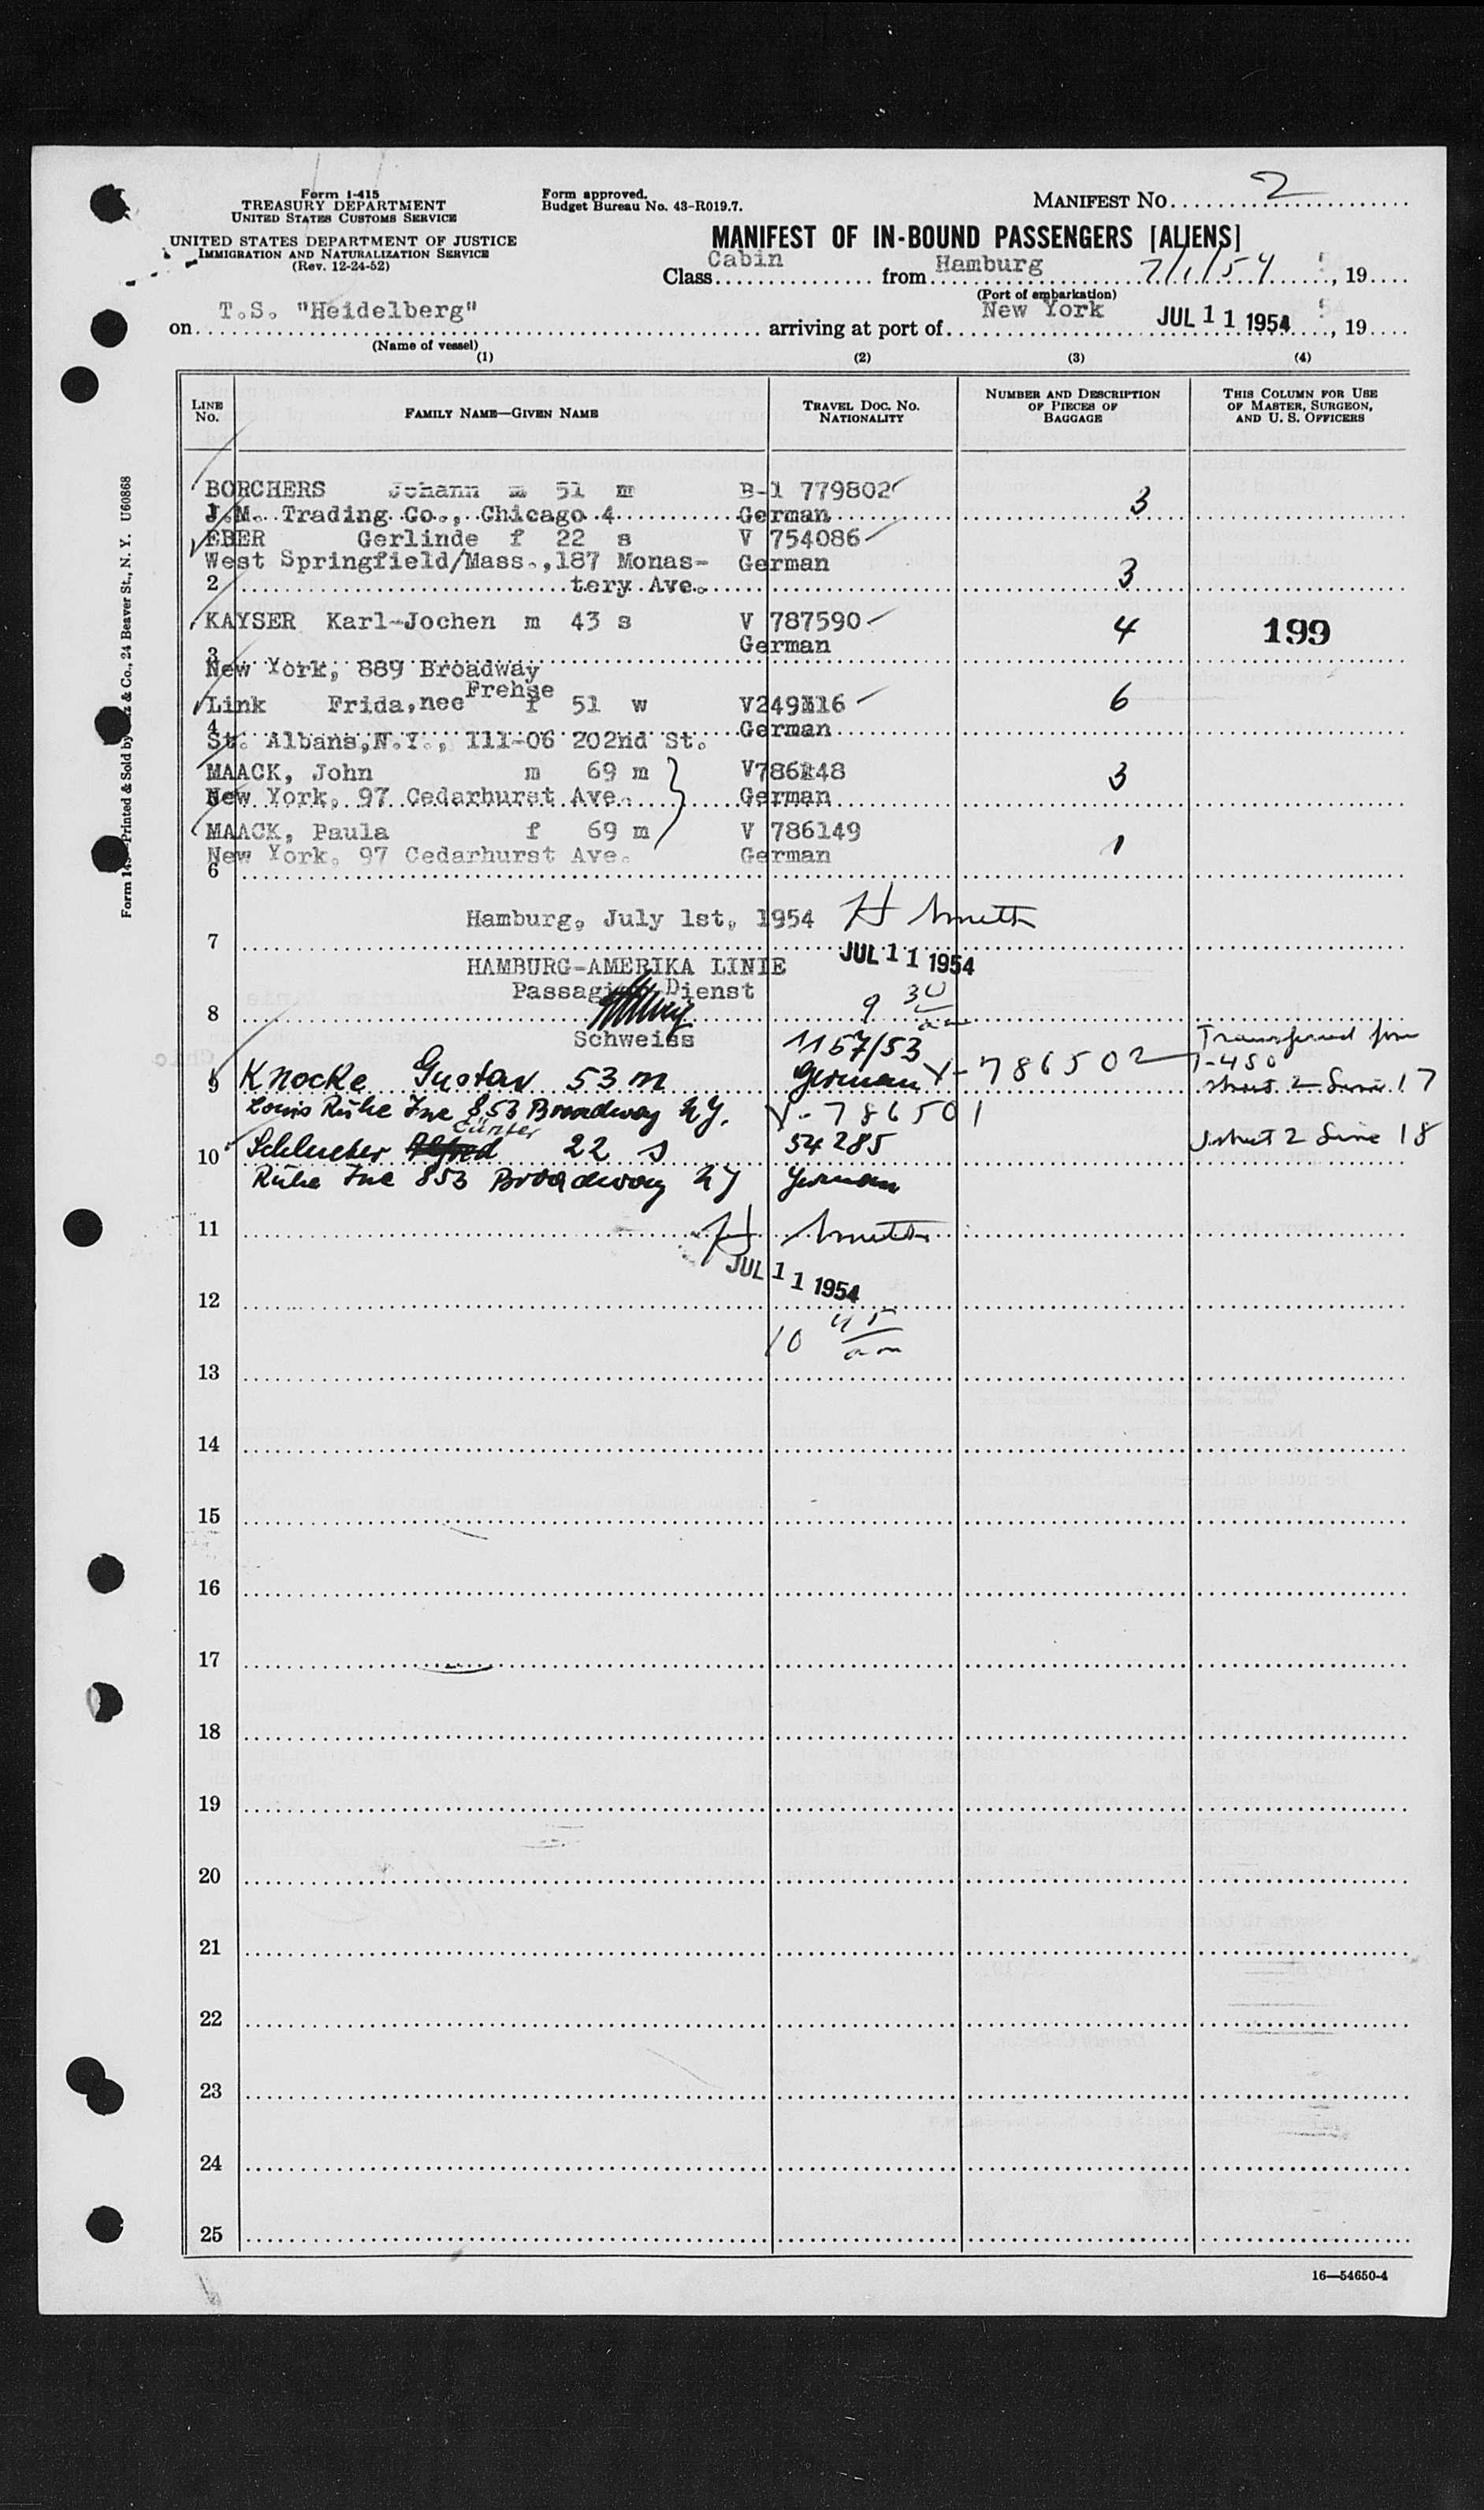 Form I-415
TREASURY DEPARTMENT
UNITED STATES CUSTOMS SERVICE
UNITED STATES DEPARTMENT OF JUSTICE
IMMIGRATION AND NATURALIZATION SERVICE
(Rev. 12-24-52)
Form approved.
Budget Bureau No. 43-R019.7.
MANIFEST No. 2
MANIFEST OF IN-BOUND PASSENGERS [ALIENS]
Class Cabin from Hamburg 7/1/54, 19
(Port of embarkation)
on T.S. "Heidelberg" arriving at port of New York JUL 11 1954, 19
(Name of vessel)
(1) (2) (3) (4)
LINE No. FAMILY NAME—GIVEN NAME TRAVEL DOC. NO. NATIONALITY NUMBER AND DESCRIPTION OF PIECES OF BAGGAGE THIS COLUMN FOR USE OF MASTER, SURGEON, AND U. S. OFFICERS
BORCHERS Johann m 51 m B-1 779802
1 J.M. Trading Co., Chicago 4 German 3
EBER Gerlinde f 22 s V 754086
West Springfield/Mass.,187 Monas- German
2 tery Ave. 3
KAYSER Karl-Jochen m 43 s V 787590 4 199
German
3
New York, 889 Broadway
Frehse
Link Frida,nee f 51 w V249116 6
4 German
St. Albans,N.Y., 111-06 202nd St.
MAACK, John m 69 m V786148 3
5 New York, 97 Cedarhurst Ave. German
MAACK, Paula f 69 m V 786149
New York. 97 Cedarhurst Ave. German 1
6
Hamburg, July 1st, 1954 H Smith
7
HAMBURG-AMERIKA LINIE JUL 11 1954
Passagier-Dienst 9 30 am
8
Schweiss 1167/53 Transferred from
9 Knocke Gustav 53 m German V-786502 I-480
sheet 2 Line 17
Louis Ruhe Inc 853 Broadway NY. V-786501
Günter
10 Schlueter Alfred 22 s 54285 sheet 2 Line 18
Ruhe Inc 853 Broadway NY German
11 H Smith
JUL 11 1954
12
10 45 am
13
14
15
16
17
18
19
20
21
22
23
24
25
16—54650-4
Printed & Sold by & Co., 24 Beaver St., N. Y. U60868